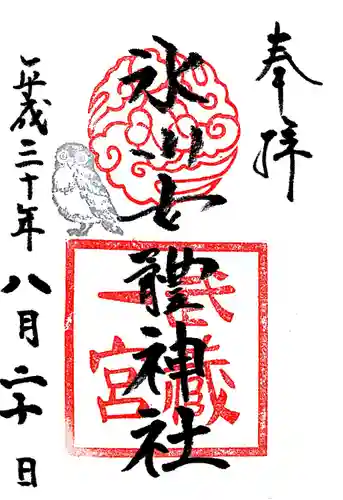 奉拝
氷川女體神社
武蔵一宮
平成三十年八月二十日